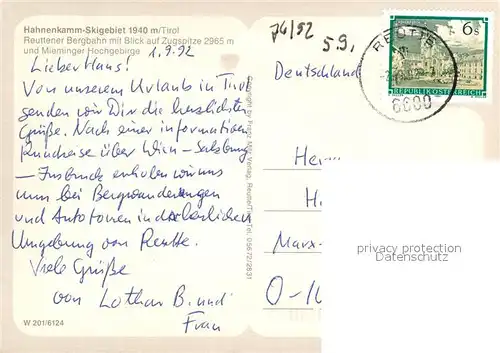 Hahnenkamm-Skigebiet 1940 m/Tirol
Reuttener Bergbahn mit Blick auf Zugspitze 2965 m
und Mieminger Hochgebirge
1.9.92
Lieber Hans!
Von unserem Urlaub in Tirol
senden wir Dir die herzlichsten
Grüße. Nach einer informativen
Rundreise über Wien – Salzburg
– Insbruck erholen wir uns
nun bei Bergwanderungen
und Autotouren in der herrlichen
Umgebung von Reutte.
Viele Grüße
von Lothar B. und
Frau
W 201/6124
Verlag, Reutte/Tirol, Tel. 05672/2831
74/92
5.9.
Deutschland
REUTTE
6600
6 S
REPUBLIK ÖSTERREICH
Herrn
H
Marx-
O-1
privacy protection
Datenschutz